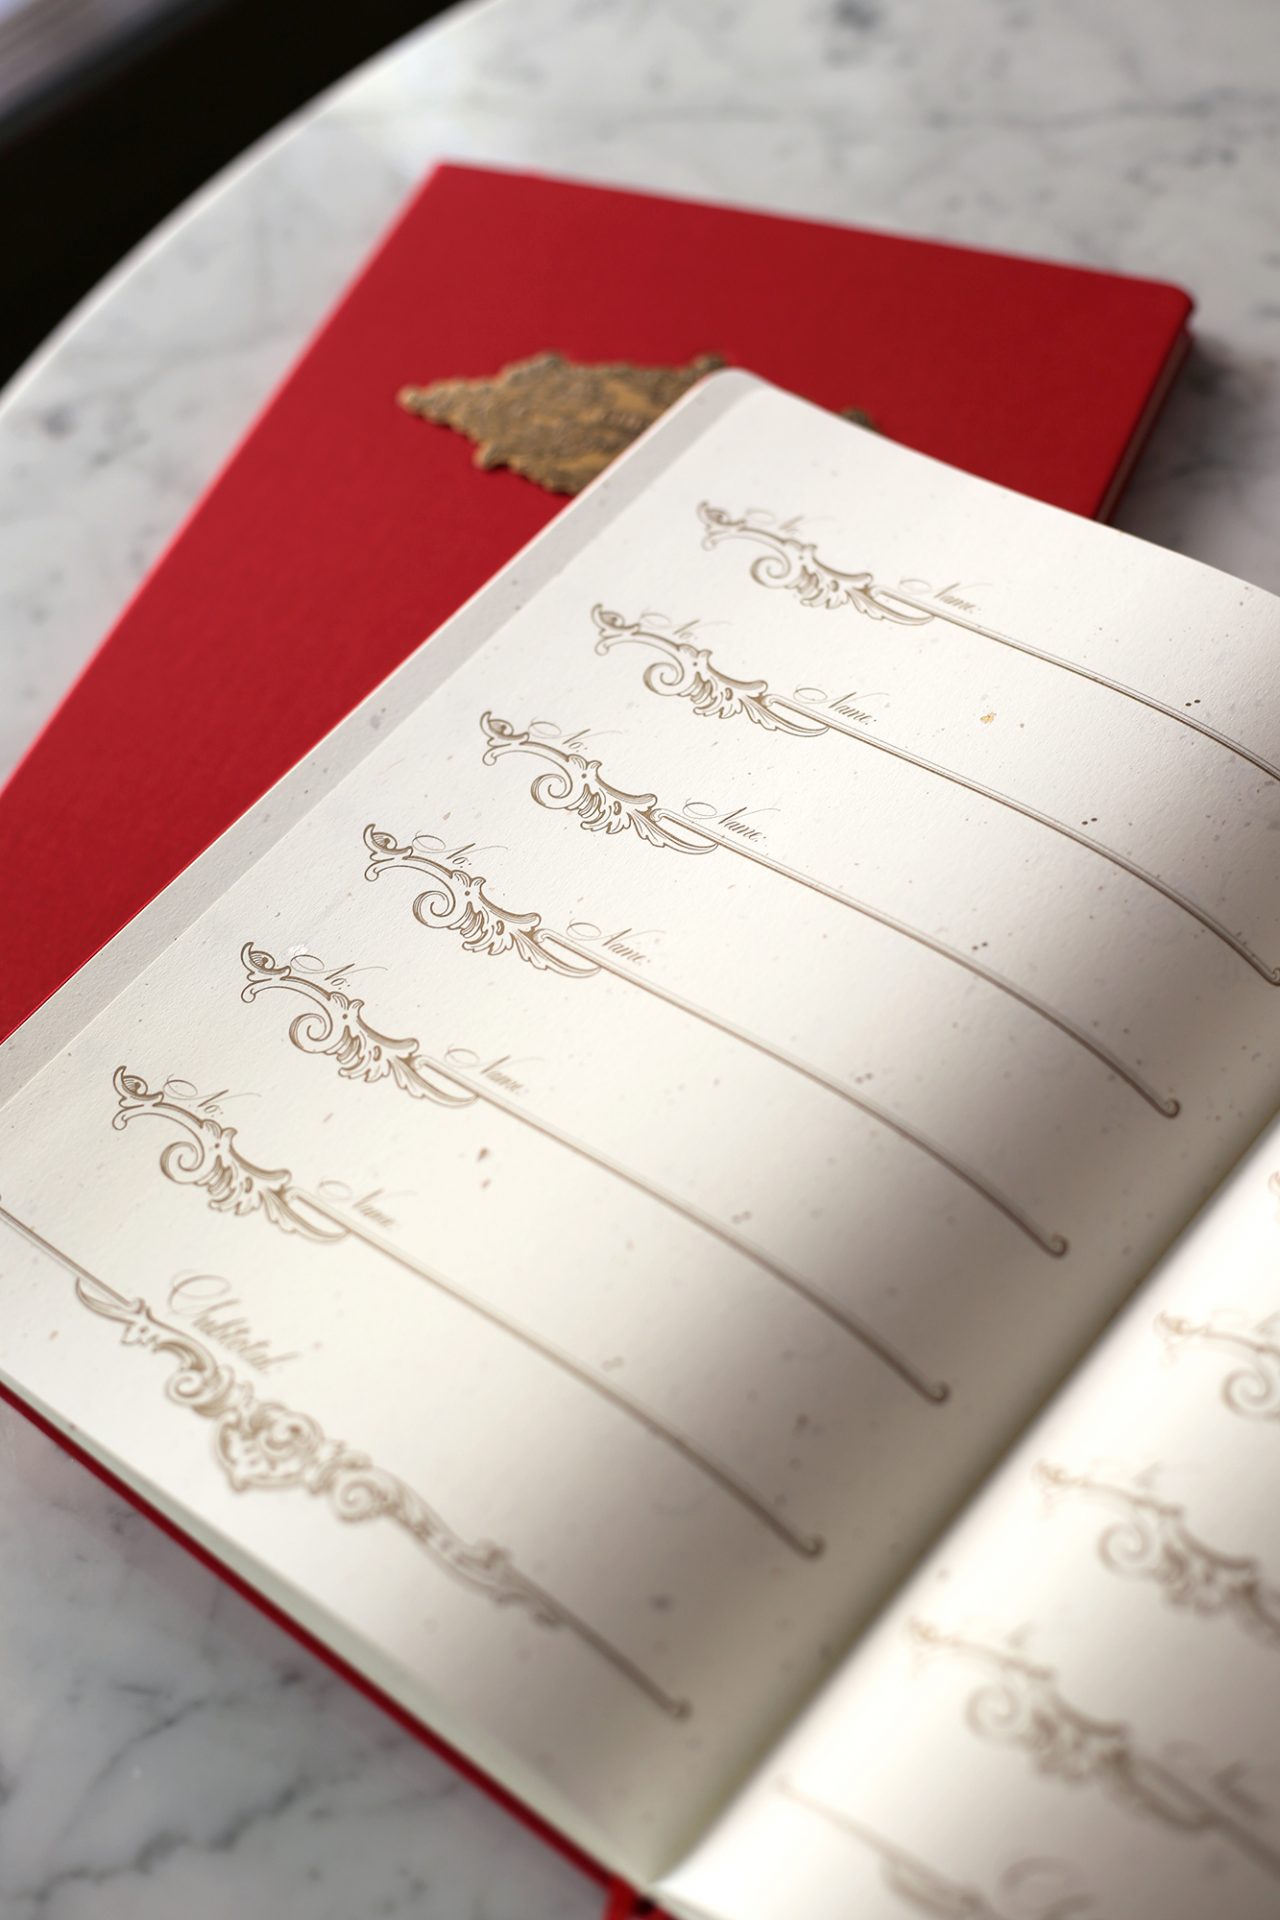 No. Name.
No. Name.
No. Name:
No. Name:
No. Name:
No. Name
Subtotal.